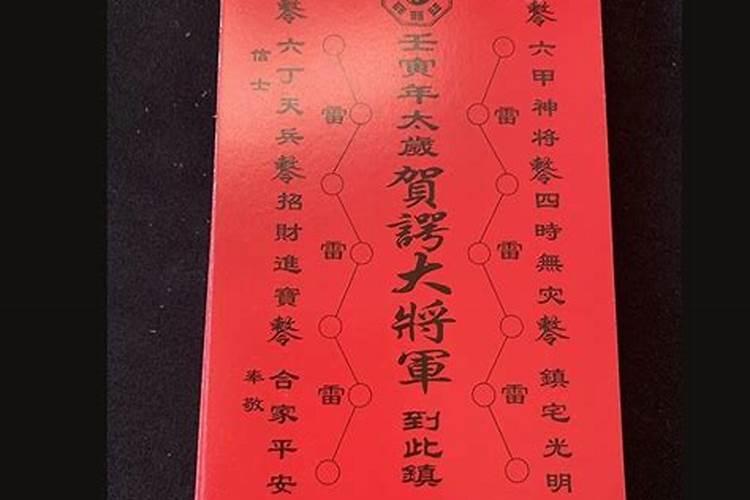 六甲神将 四時無灾 鎮宅光明
雷 雷 雷
壬寅年太歲賀諤大將軍到此鎮
雷 雷 雷
六丁天兵 招財進寶 合家平安
信士 奉敬